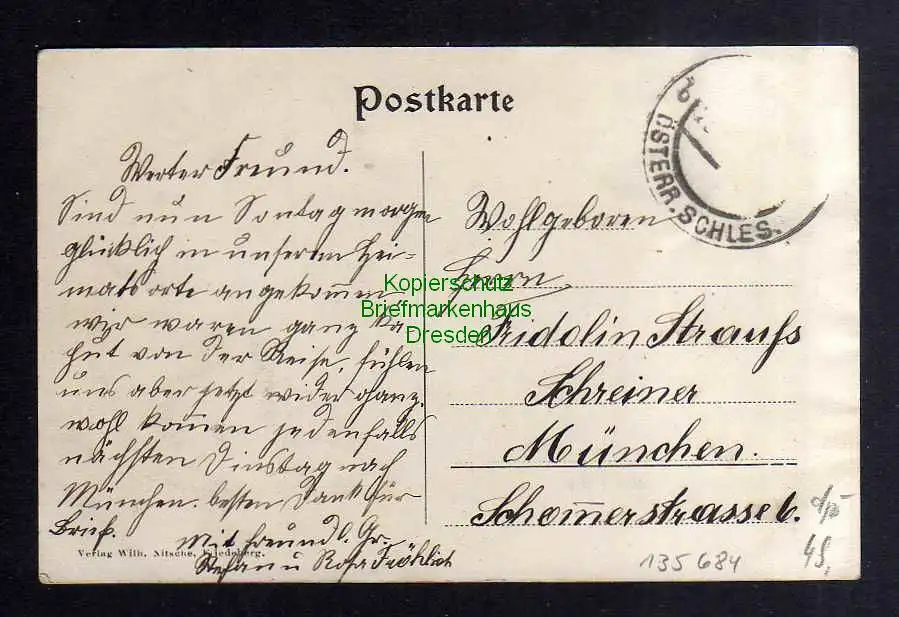 Postkarte
ÖSTERR. SCHLES.
Werter Freund.
Sind nun Sontagmorgen
glücklich in unserem Hei-
matsorte angekommen
wir waren ganz ka
put von der Reise, fühlen
uns aber jetzt wider ganz
wohl kommen jedenfalls
nächsten Dinstag nach
München. besten Dank für
Brief.
Mit freundl. Gr.
Stefan u Rosa Fröhlich
Verlag Wilh. Nitsche, Friedeberg.
Wohlgeboren
Herrn
Fridolin Strauss
Schreiner
München.
Schommerstrasse 6.
135684
45,
Kopierschutz
Briefmarkenhaus
Dresden